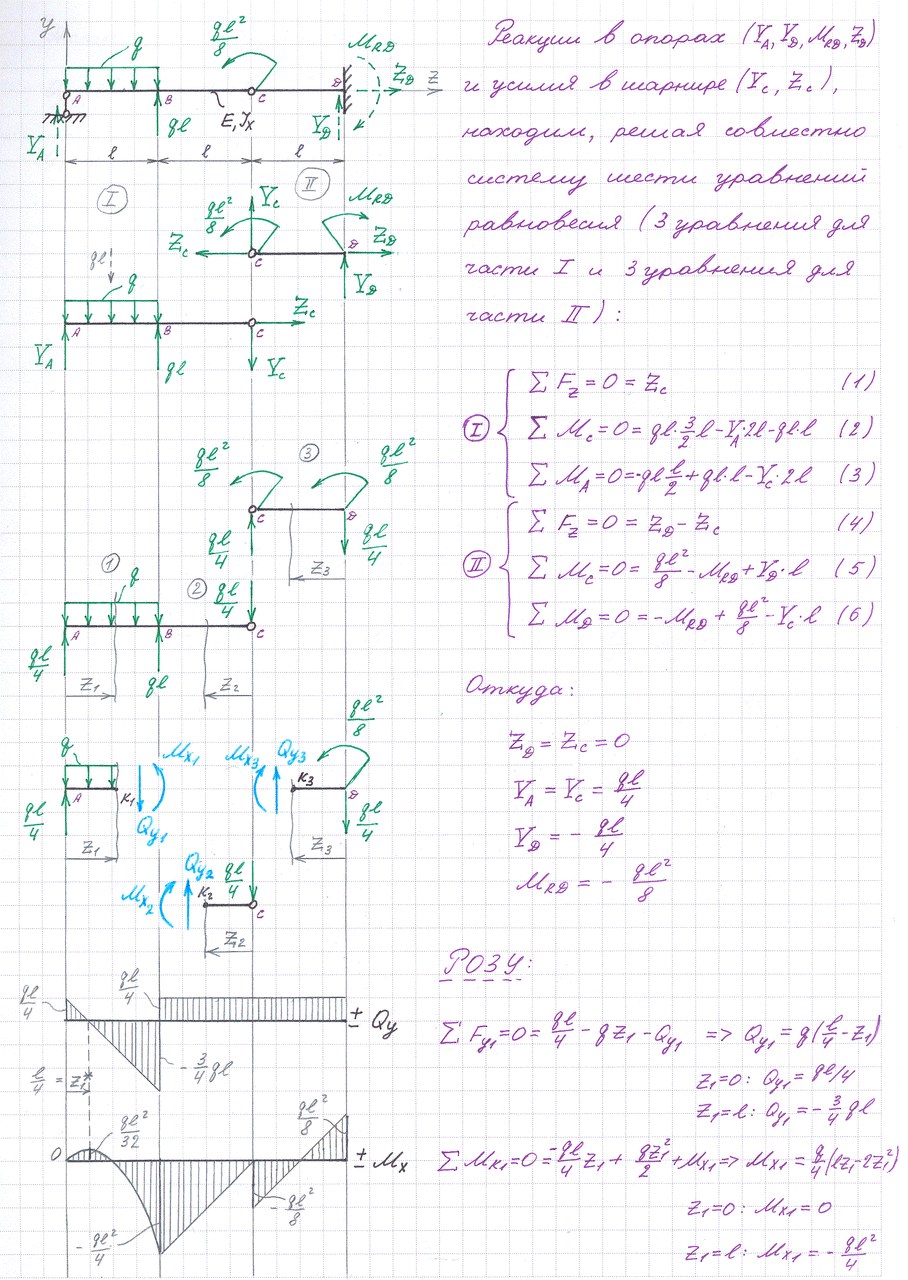 y
q
ql²/8
M_RD
Z_D
Z
A
B
C
D
E, J_x
Y_A
ql
Y_D
l
l
l
I
II
Y_C
ql²/8
M_RD
Z_C
Z_D
C
D
Y_D
ql
q
Z_C
A
B
C
Y_A
ql
Y_C
ql²/8
3
ql²/8
C
D
ql/4
Z₃
ql/4
1
q
2
ql/4
A
B
C
ql/4
Z₁
ql
Z₂
ql²/8
q
M_x1
M_x3
Q_y3
A
K₁
K₃
D
ql/4
Q_y1
ql/4
Z₁
Z₃
Q_y2
ql/4
M_x2
K₂
C
Z₂
ql/4
ql/4
± Q_y
- 3/4 ql
l/4 = Z₁*
ql²/32
ql²/8
0
± M_x
- ql²/8
- ql²/4
Реакции в опорах (Y_A, Y_D, M_RD, Z_D)
и усилия в шарнире (Y_C, Z_C),
находим, решая совместно
систему шести уравнений
равновесия (3 уравнения для
части I и 3 уравнения для
части II):
I
∑ F_Z = 0 = Z_C (1)
∑ M_C = 0 = ql·3/2 l - Y_A·2l - ql·l (2)
∑ M_A = 0 = -ql l/2 + ql·l - Y_C·2l (3)
II
∑ F_Z = 0 = Z_D - Z_C (4)
∑ M_C = 0 = ql²/8 - M_RD + Y_D·l (5)
∑ M_D = 0 = -M_RD + ql²/8 - Y_C·l (6)
Откуда:
Z_D = Z_C = 0
Y_A = Y_C = ql/4
Y_D = - ql/4
M_RD = - ql²/8
РОЗУ:
∑ F_y1 = 0 = ql/4 - qz₁ - Q_y1 => Q_y1 = q(l/4 - z₁)
z₁=0: Q_y1 = ql/4
z₁=l: Q_y1 = - 3/4 ql
∑ M_K1 = 0 = -ql/4 z₁ + qz₁²/2 + M_x1 => M_x1 = q/4 (lz₁ - 2z₁²)
z₁=0: M_x1 = 0
z₁=l: M_x1 = - ql²/4